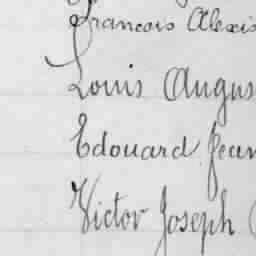 Francois Alexis
Louis Augus
Edouard Jean
Victor Joseph